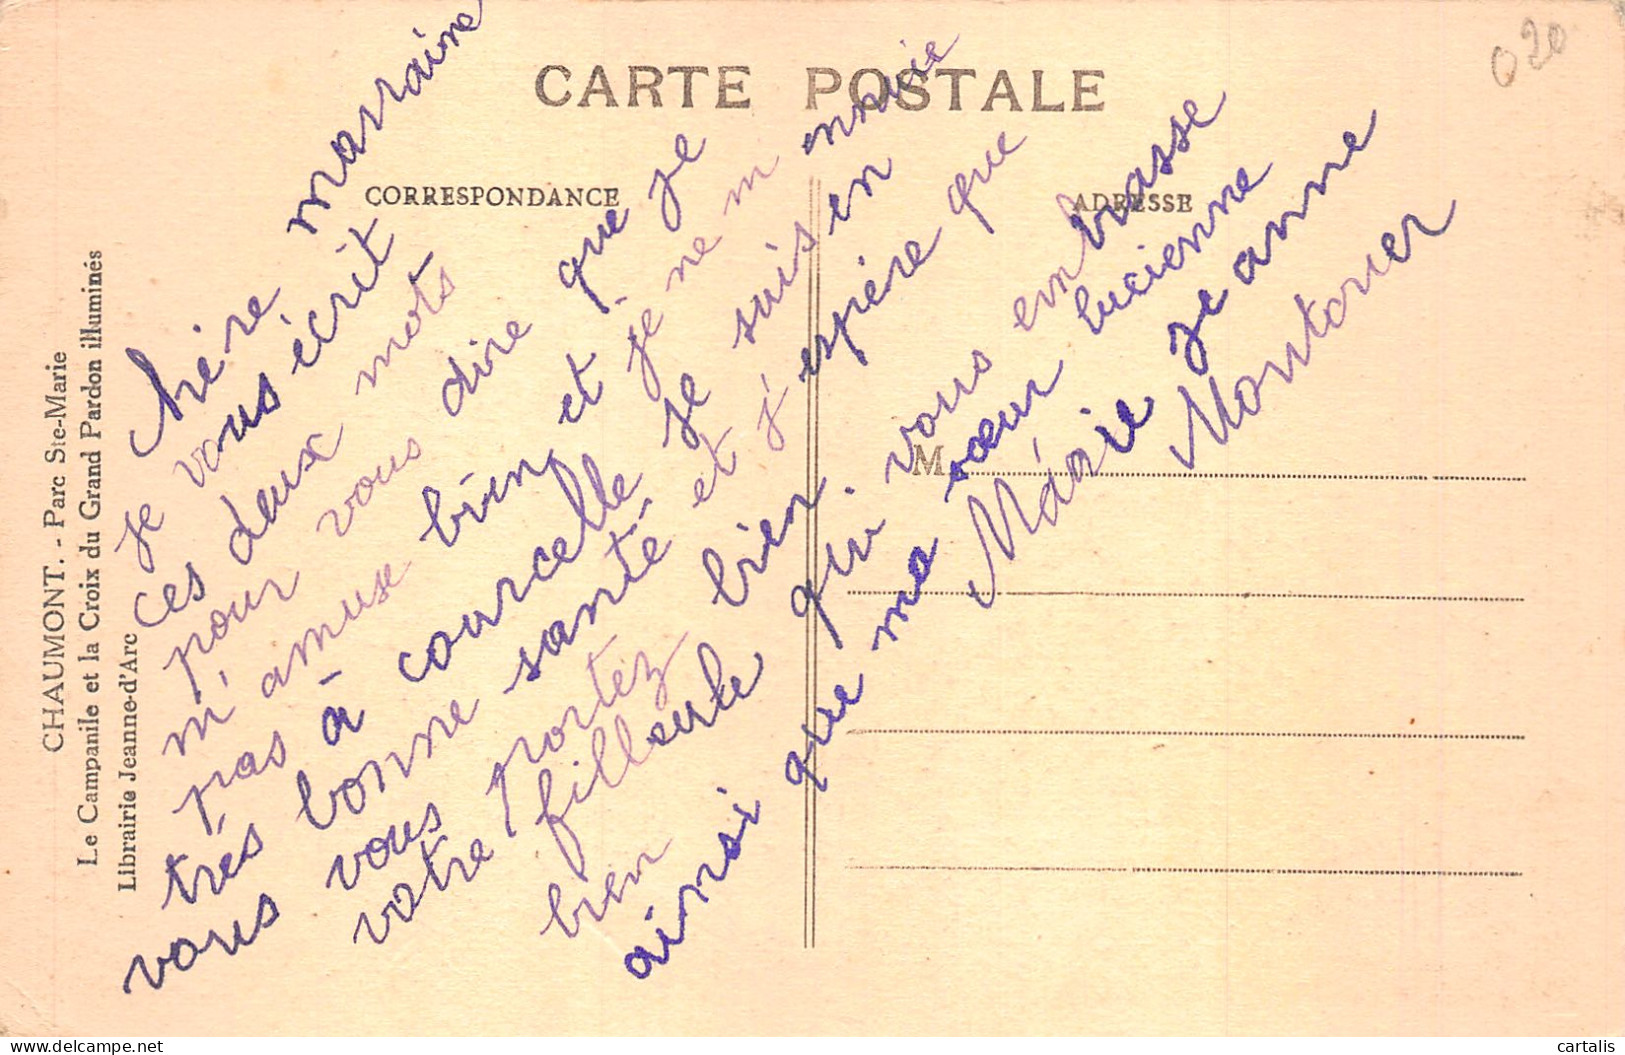 CARTE POSTALE
CORRESPONDANCE
ADRESSE
M
020
CHAUMONT. - Parc Ste-Marie
Le Campanile et la Croix du Grand Pardon illuminés
Librairie Jeanne-d'Arc
chère marraine
je vous écrit
ces deux mots
pour vous dire que je
m'amuse bien et je ne m ennuie
pas à courcelle je suis en
trés bonne santé et j'espére que
vous vous portez bien
votre filleule qui vous embrasse
bien
ainsi que ma sœur lucienne
Marie jeanne
Montaner
cartalis